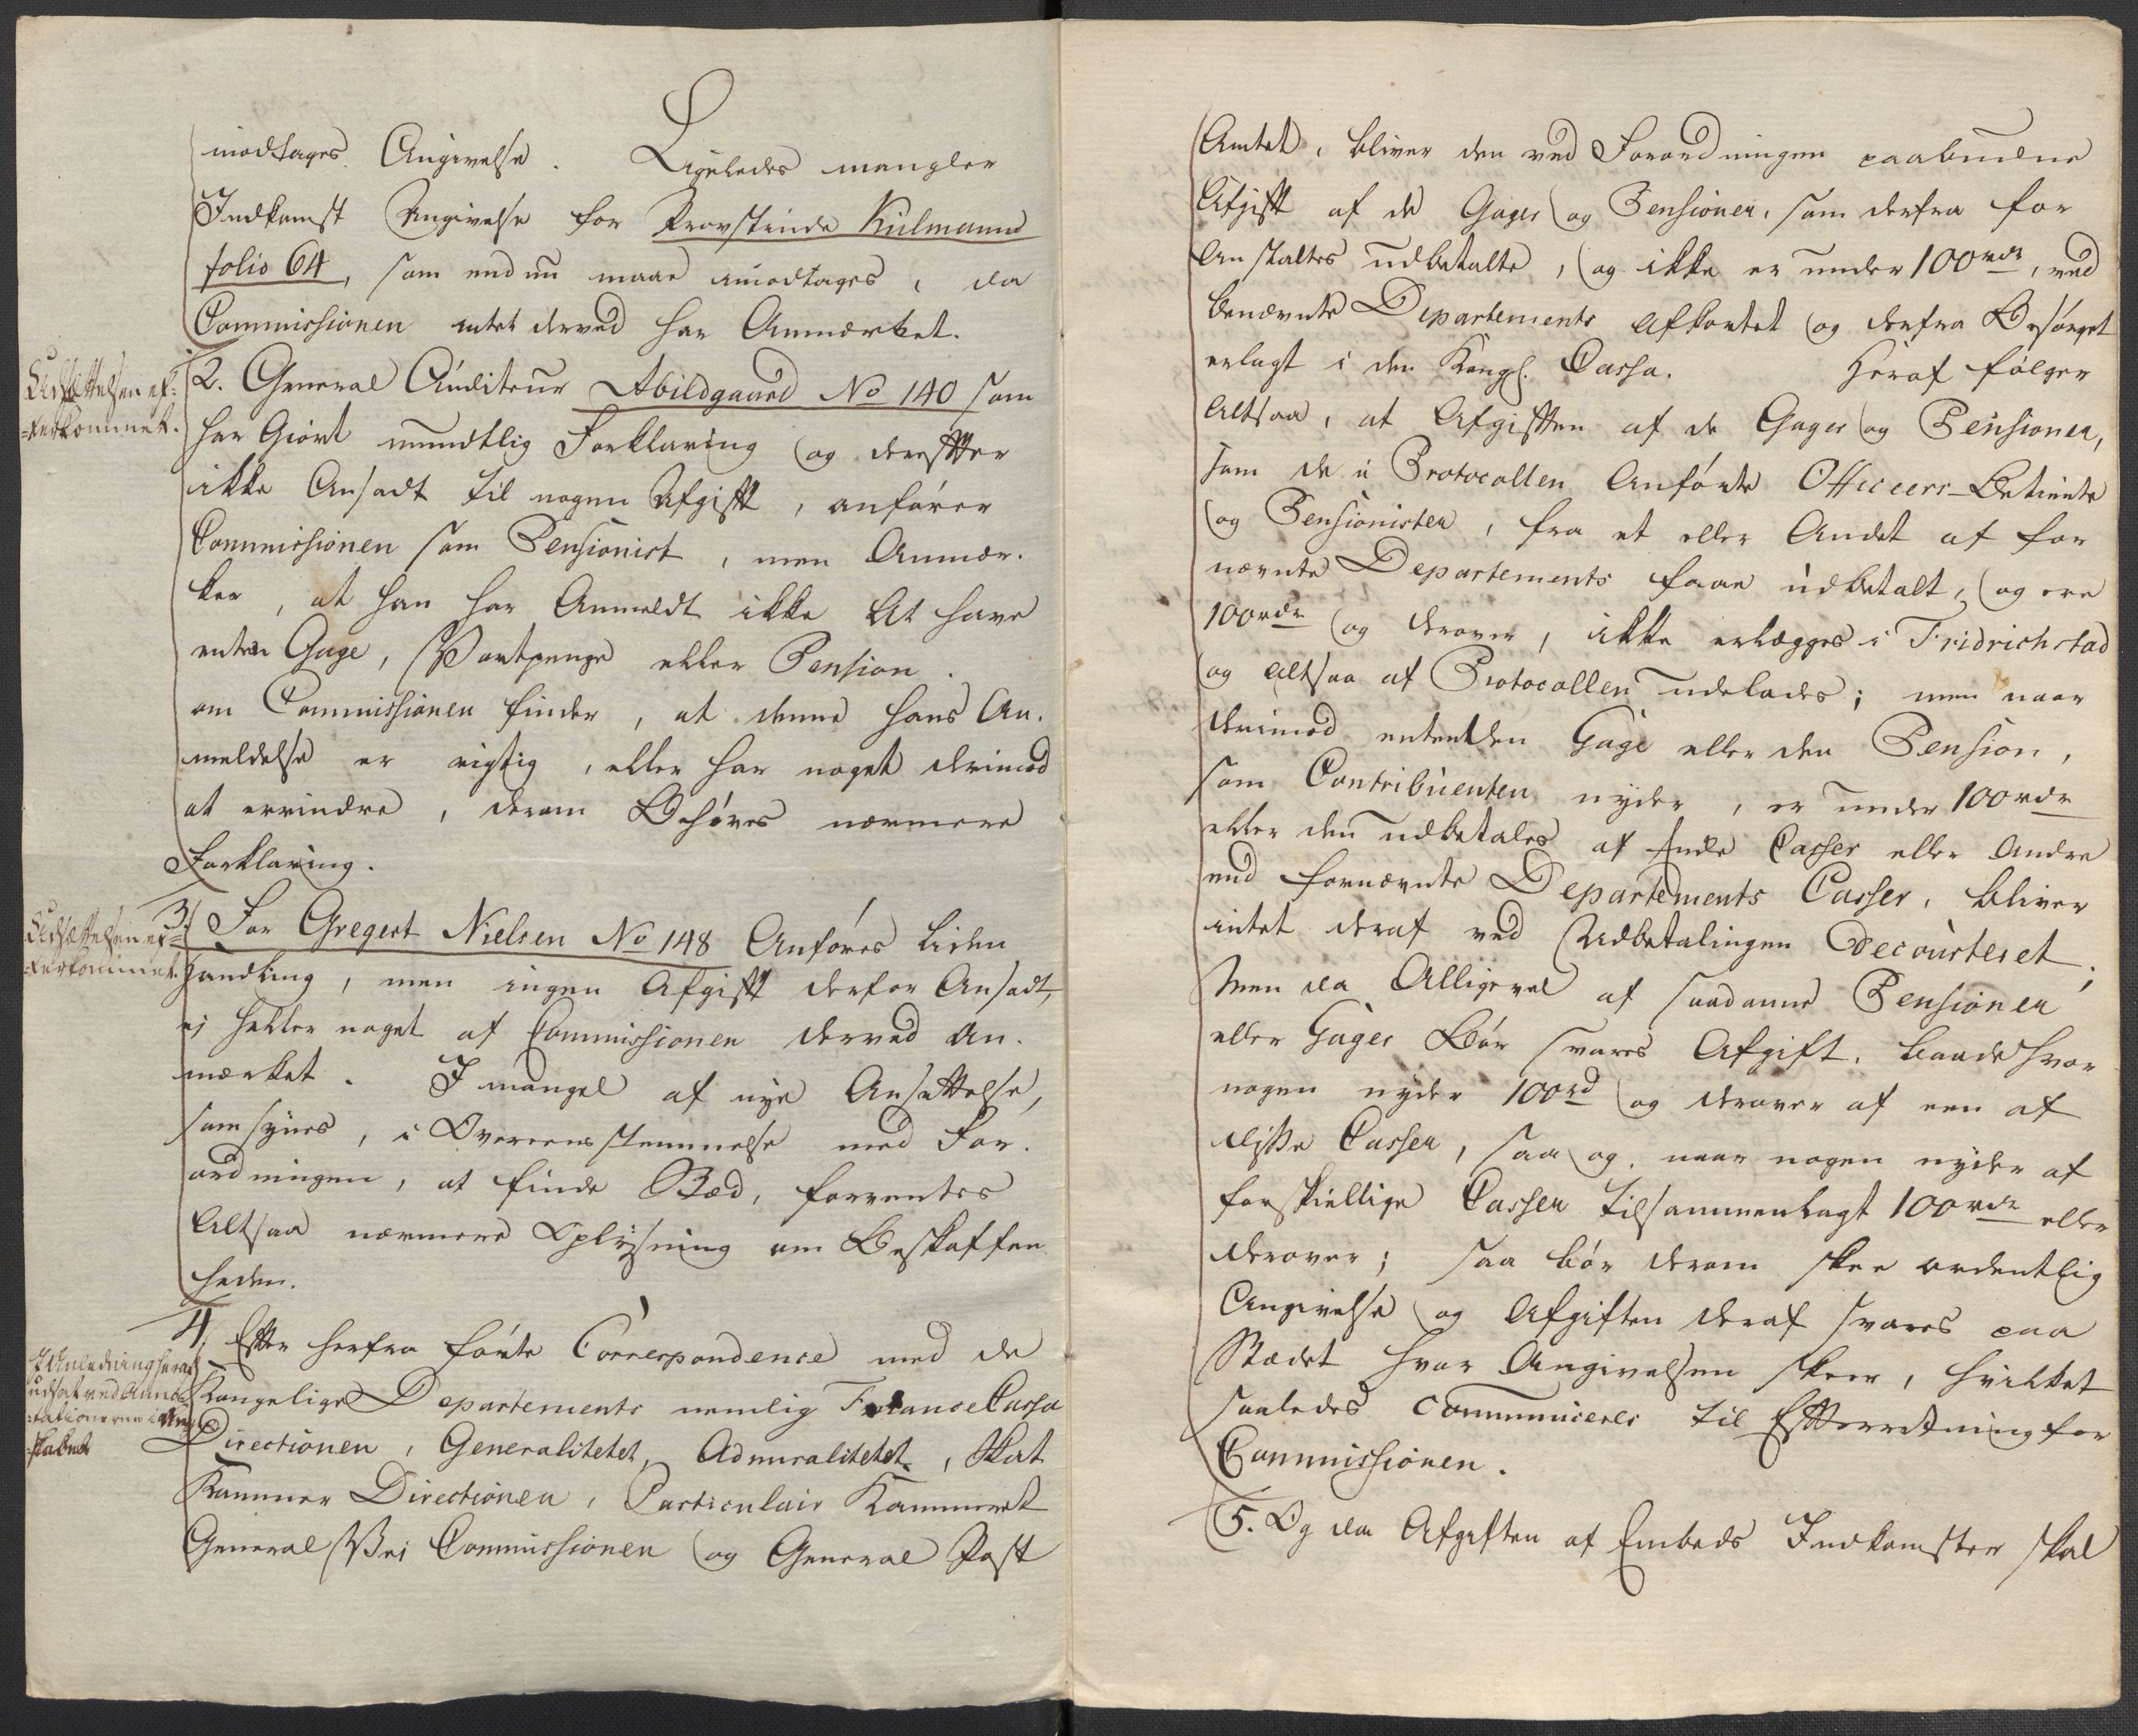 modtages Angivelse. Ligeledes mangler
Indkomst Angivelse for Provstinde Kulmann
folio 64, som endnu maae modtages, da
Commissionen intet derved har Anmærket.
Udsættelsen ef-
terkommet.
2. General Auditeur Abildgaard No 140 som
har Giort mundtlig Forklaring og derefter
ikke Ansadt til nogen Afgift, anfører
Commissionen som Pensionist, men Anmær-
ker, at han har Anmeldt ikke at have
enten Gage, Vartpenge eller Pension.
om Commissionen finder, at denne hans An-
meldelse er rigtig, eller har noget derimod
at erindre, derom Behøves nærmere
Forklaring.
Udsættelsen ef-
terkommet.
3. For Gregert Nielsen No 148 Anføres liden
Handling, men ingen Afgift derfor Ansadt,
ej heller noget af Commissionen derved an-
mærket. I mangel af nye Ansættelse,
som synes, i Overeensstemmelse med For-
ordningen, at finde Stæd, forventes
Altsaa nærmere Oplysning om Beskaffen
heden.
I Anledning heraf
udsat ved Anno-
tationerne i Regn
skabet
4. Efter herfra førte Correspondence med de
Kongelige Departements nemlig Finance Cassa
Directionen, Generalitetet, Admiralitetet, Skat
Kammer Directionen, Particulair Kammeret
General Vei Commissionen og General Post
Amtet, bliver den ved Forordningen paabudne
Afgift af de Gager og Pensioner, som derfra for
anstaltes udbetalte, og ikke er under 100 rdr, ved
benævnte Departements afkortet og derfra Besørget
erlagt i den Kongl. Cassa. Heraf følger
altsaa, at Afgiften af de Gager og Pensioner,
som de i Protocollen Anførte Officeers-Betiente
og Pensionister, fra et eller Andet af for
nævnte Departements faaer udbetalt, og ere
100 rdr og derover, ikke erlægges i Fridrichstad
og altsaa af Protocollen udelades; men naar
derimod enten den Gage eller den Pension,
som Contribuenten nyder, er under 100 rdr
eller den udbetales af Andre Casser eller Andre
end fornævnte Departements Casser, bliver
intet deraf ved Udbetalingen Decourteret;
Men da Alligevel af saadanne Pensioner
eller Gager Bør svares Afgift, baade hvor
nogen nyder 100 rd og derover af een af
disse Casser, saa og, naar nogen nyder af
forskiellige Casser tilsammenlagt 100 rdr eller
derover; saa bør derom skee ordentlig
Angivelse og Afgiften deraf svares paa
Stædet hvor Angivelsen skeer, hvilket
saaledes communiceres til Efterretning for
Commissionen.
5. Og da Afgiften af Embeds Indkomster skal